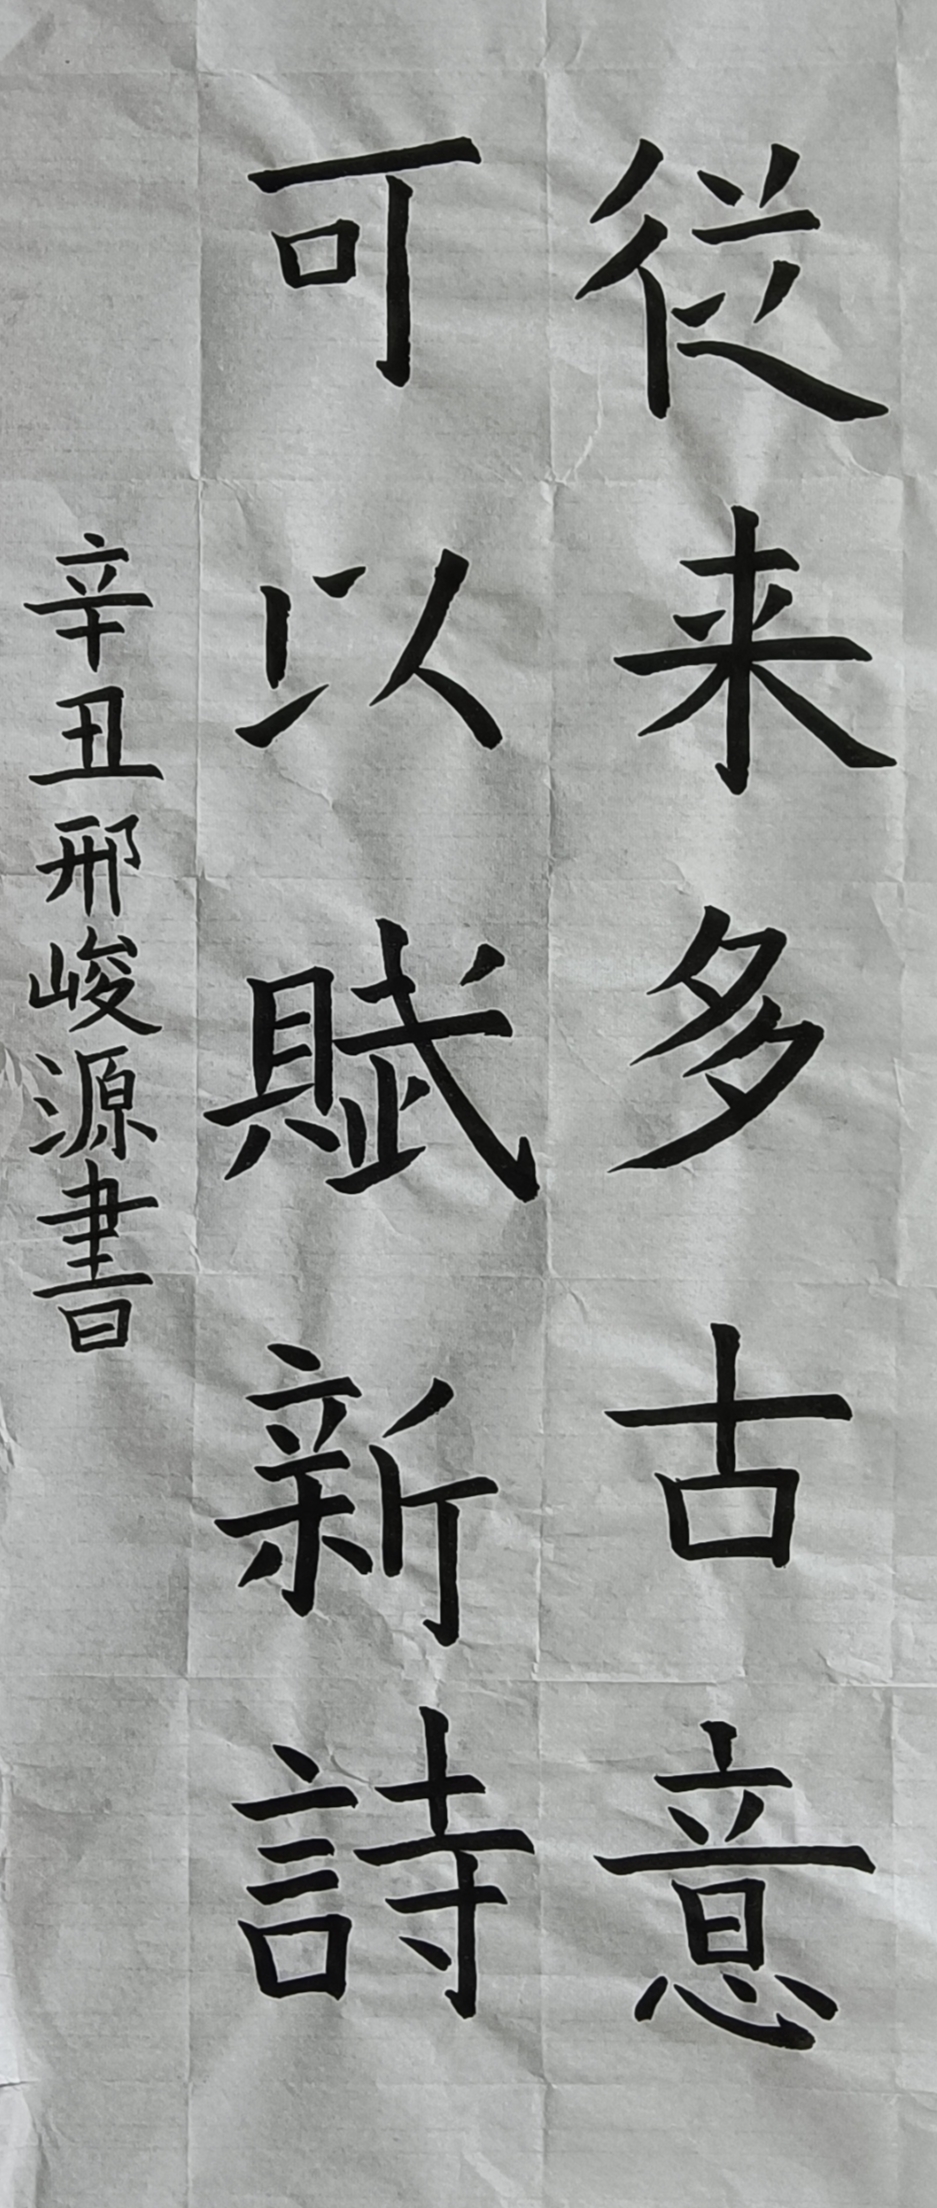 従来多古意
可以賦新詩
辛丑邢峻源書